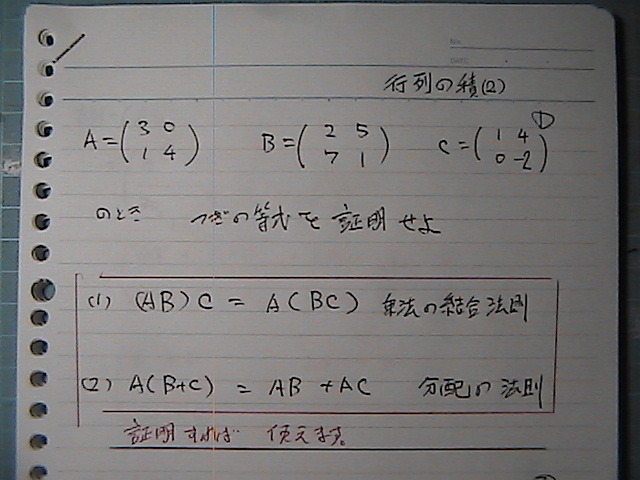 No.
DATE
行列の積(2)
①
A=(3 0 1 4) B=(2 5 7 1) C=(1 4 0 -2)
のとき つぎの等式を証明せよ
(1) (AB)C = A(BC) 乗法の結合法則
(2) A(B+C) = AB +AC 分配の法則
証明すれば 使えます。